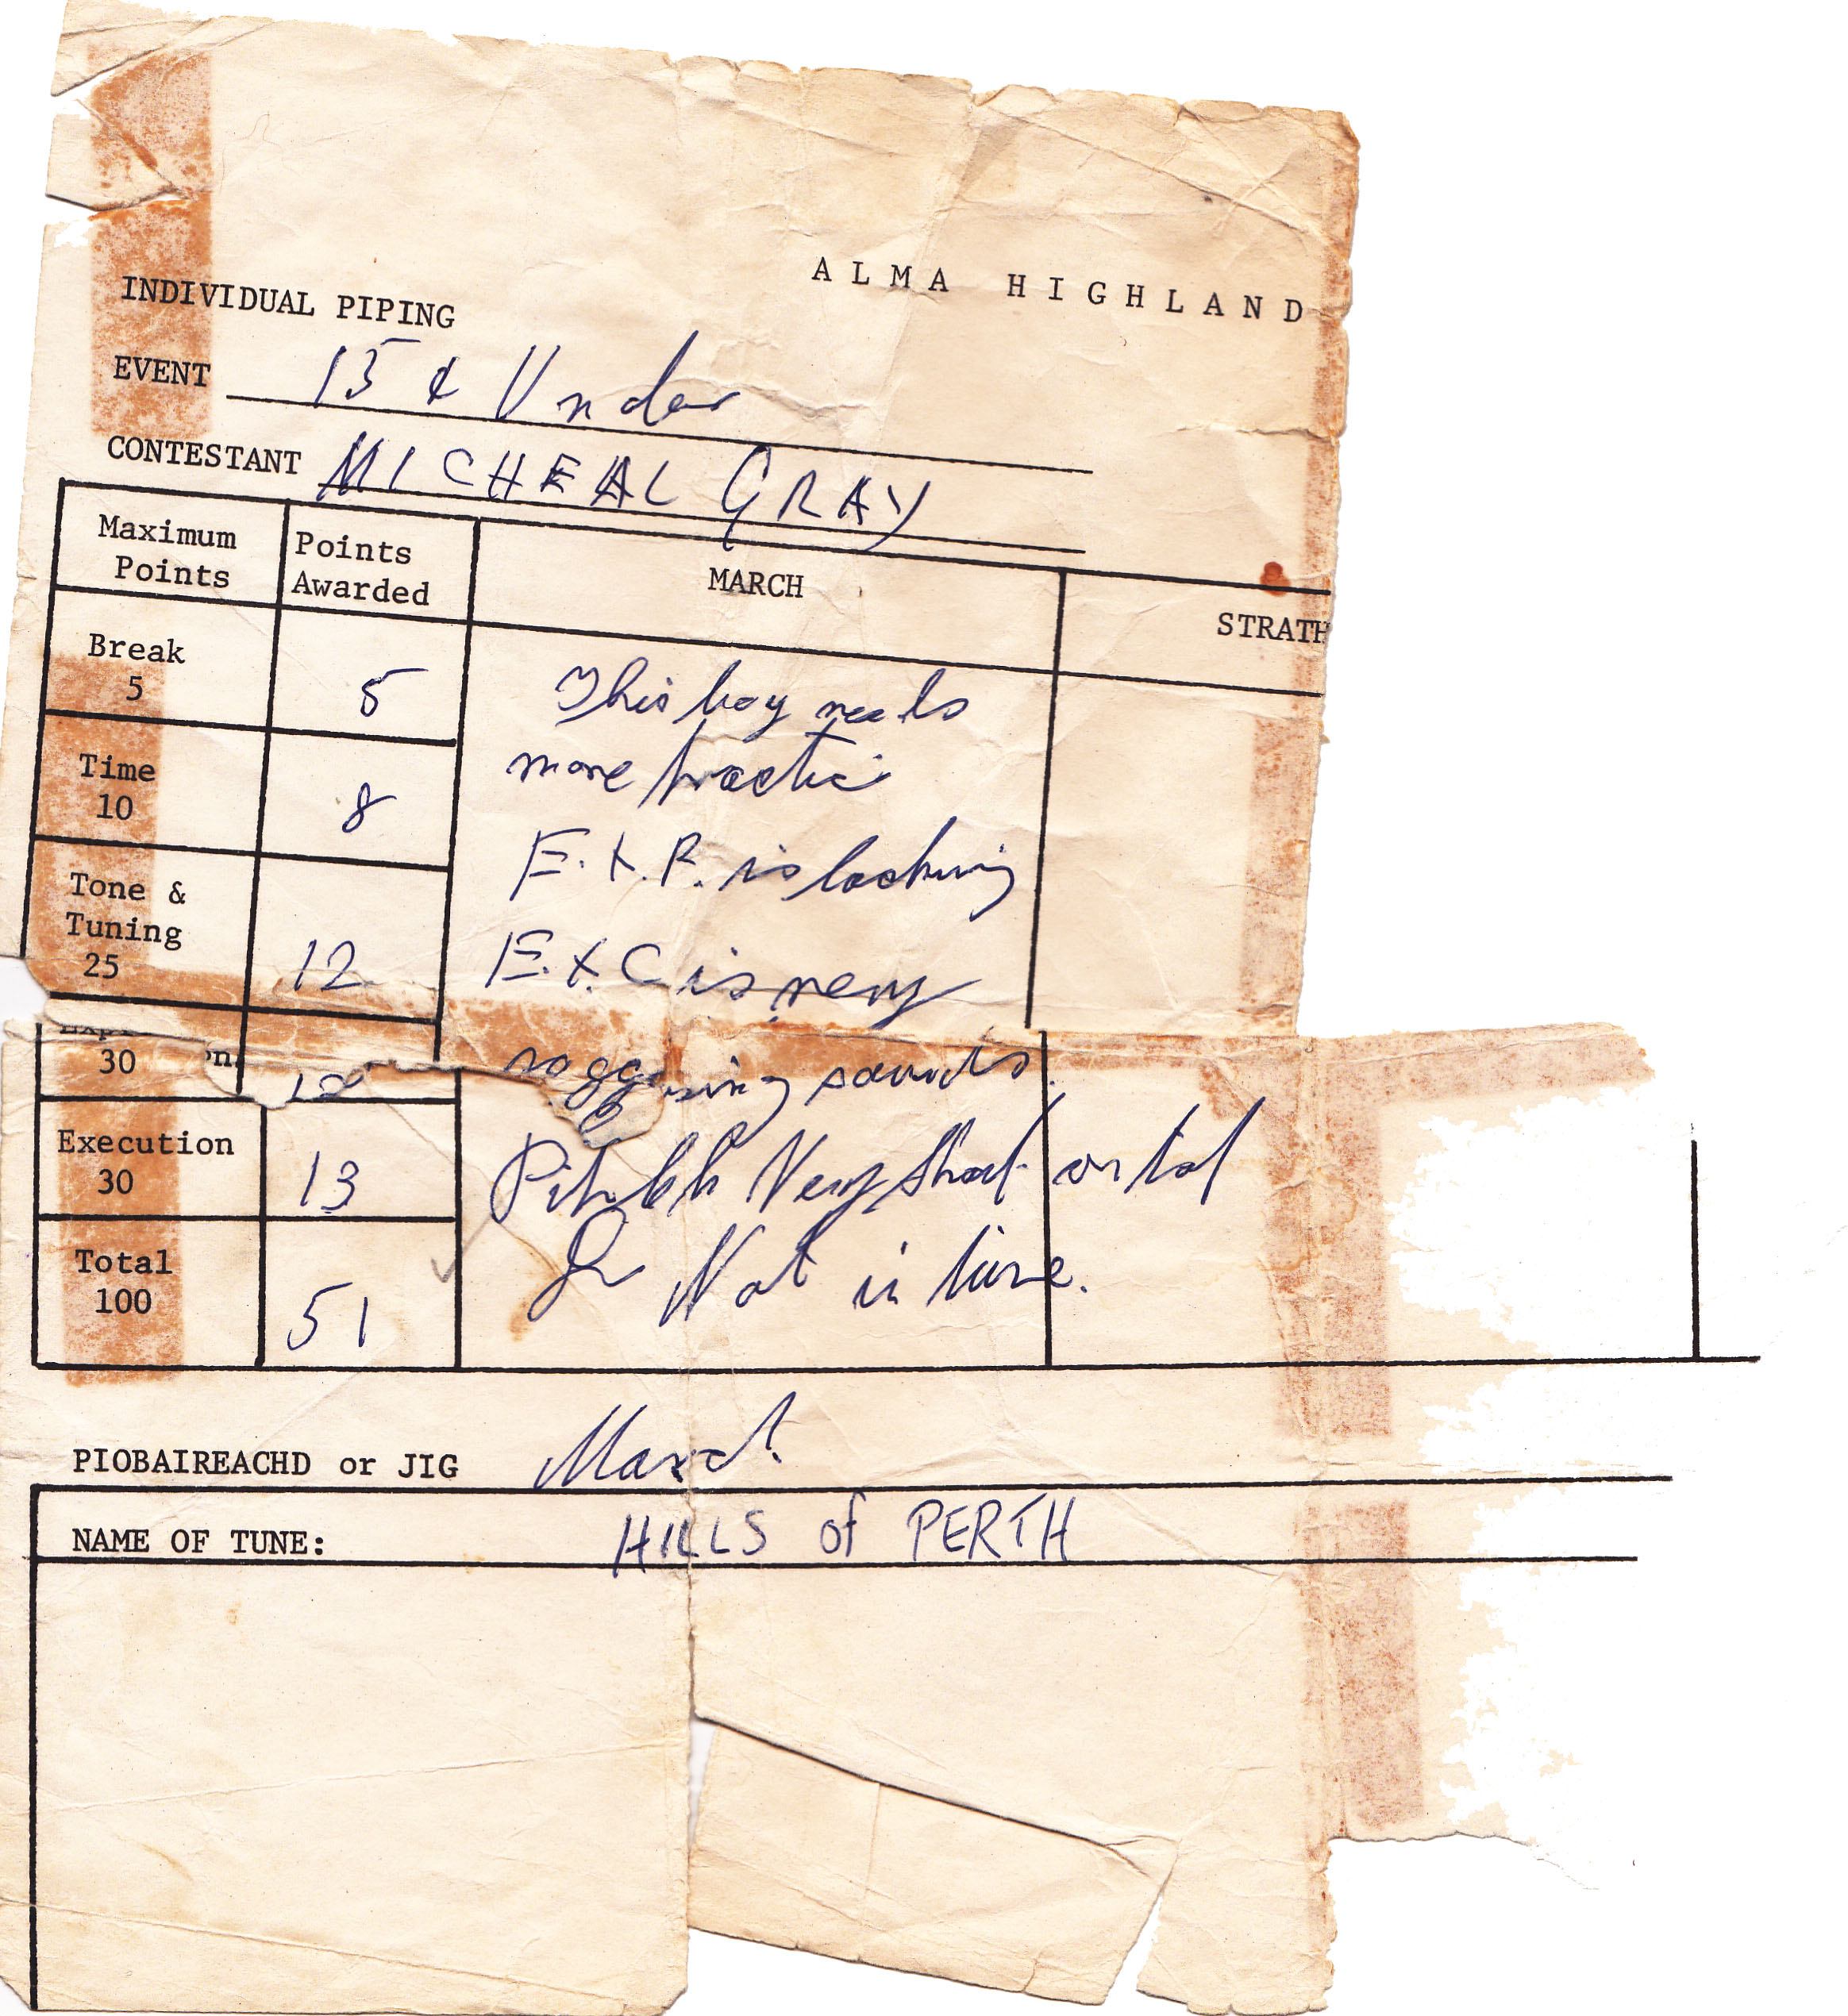 ALMA HIGHLAND
INDIVIDUAL PIPING
EVENT 15 & Under
CONTESTANT MICHEAL GRAY
Maximum Points
Points Awarded
MARCH
STRATH
Break 5
5
This boy needs
Time 10
8
more practic
Tone & Tuning 25
12
E. & P. is lacking
E. & C is very
30
sounds.
Execution 30
13
Very short on tol
Total 100
51
Not in time.
PIOBAIREACHD or JIG March
NAME OF TUNE: HILLS of PERTH